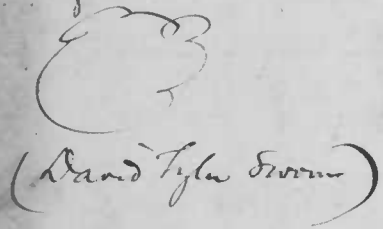 (David Tyler Swem)